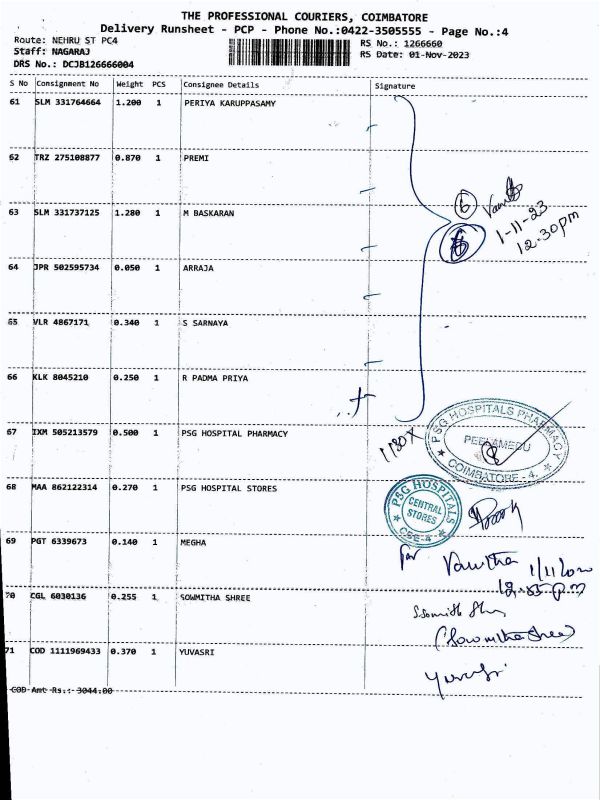 THE PROFESSIONAL COURIERS, COIMBATORE
Delivery Runsheet - PCP - Phone No.:0422-3505555 - Page No.:4
Route: NEHRU ST PC4
RS No.: 1266660
Staff: NAGARAJ
RS Date: 01-Nov-2023
DRS No.: DCJB126666004
S No Consignment No Weight PCS Consignee Details Signature
61 SLM 331764664 1.200 1 PERIYA KARUPPASAMY
62 TRZ 275108877 0.870 1 PREMI
63 SLM 331737125 1.280 1 M BASKARAN
6
1-11-23
12.30pm
64 JPR 502595734 0.050 1 ARRAJA
65 VLR 4867171 0.340 1 S SARNAYA
66 KLK 8045210 0.250 1 R PADMA PRIYA
67 IXM 505213579 0.500 1 PSG HOSPITAL PHARMACY
PSG HOSPITALS PHARMACY
PEELAMEDU
COIMBATORE - 4.
68 MAA 862122314 0.270 1 PSG HOSPITAL STORES
PSG HOSPITALS
CENTRAL
STORES
CBE-4
69 PGT 6339673 0.140 1 MEGHA
For Vanitha
70 CGL 6030136 0.255 1 SOWMITHA SHREE
(Sowmitha Shree)
71 COD 1111969433 0.370 1 YUVASRI
Yuvasri
COD Amt Rs.: 3044.00